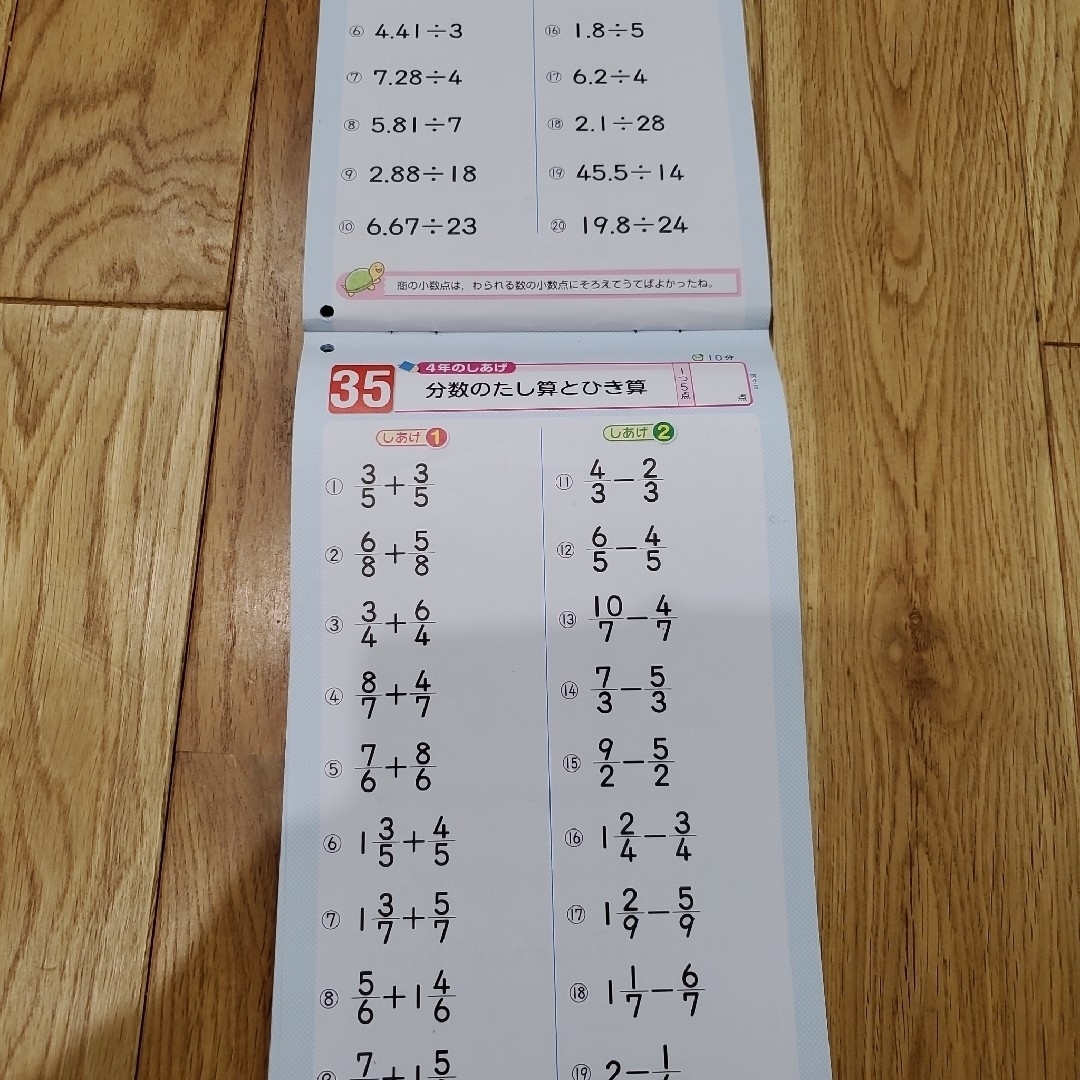 ⑥ 4.41÷3
⑦ 7.28÷4
⑧ 5.81÷7
⑨ 2.88÷18
⑩ 6.67÷23
⑯ 1.8÷5
⑰ 6.2÷4
⑱ 2.1÷28
⑲ 45.5÷14
⑳ 19.8÷24
商の小数点は，わられる数の小数点にそろえてうてばよかったね。
35
4年のしあげ
分数のたし算とひき算
10分
1つ5点
点
しあげ 1
① 3/5+3/5
② 6/8+5/8
③ 3/4+6/4
④ 8/7+4/7
⑤ 7/6+8/6
⑥ 1 3/5+4/5
⑦ 1 3/7+5/7
⑧ 5/6+1 4/6
しあげ 2
⑪ 4/3−2/3
⑫ 6/5−4/5
⑬ 10/7−4/7
⑭ 7/3−5/3
⑮ 9/2−5/2
⑯ 1 2/4−3/4
⑰ 1 2/9−5/9
⑱ 1 1/7−6/7